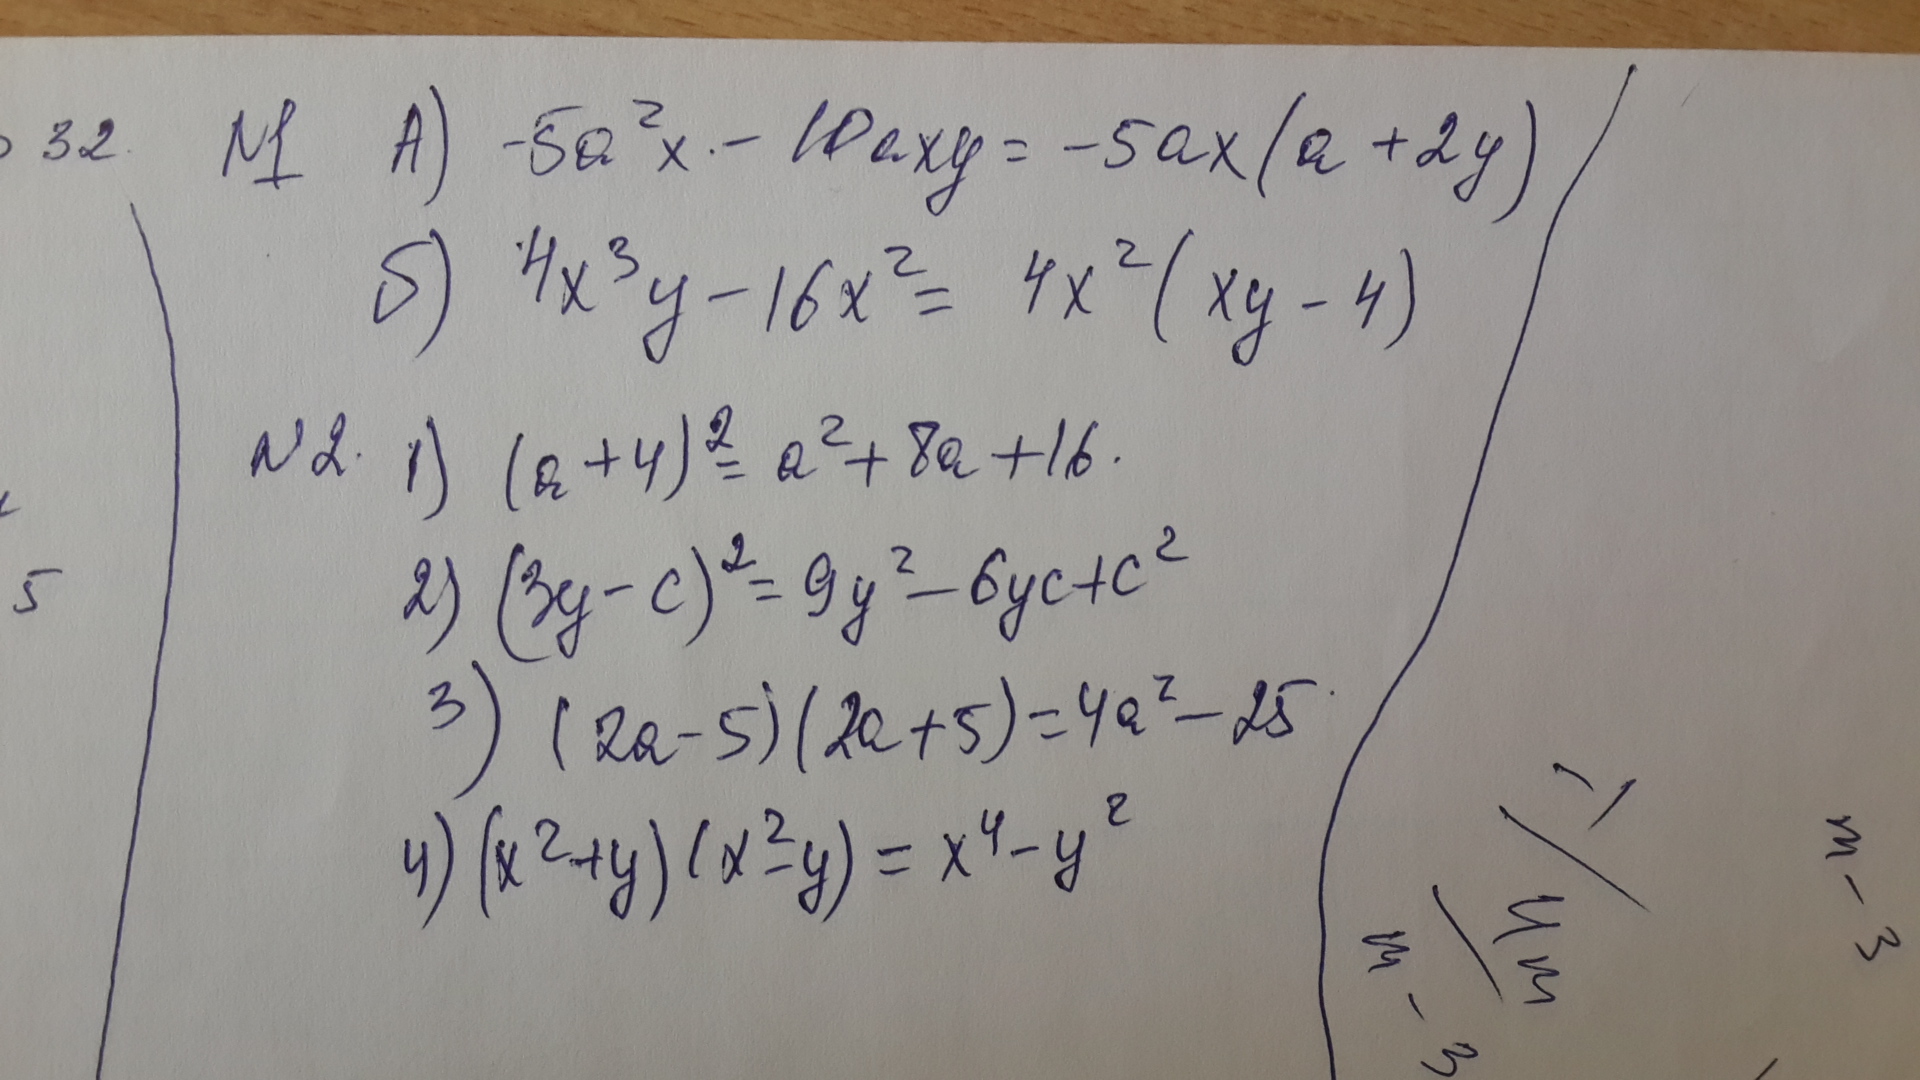 32. N1 А) -5a²x - 10axy = -5ax(a + 2y)
б) 4x³y - 16x² = 4x²(xy - 4)
N2. 1) (a + 4)² = a² + 8a + 16.
2) (3y - c)² = 9y² - 6yc + c²
5
3) (2a - 5)(2a + 5) = 4a² - 25
4) (x² + y)(x² - y) = x⁴ - y²
m - 3
4m
m - 3